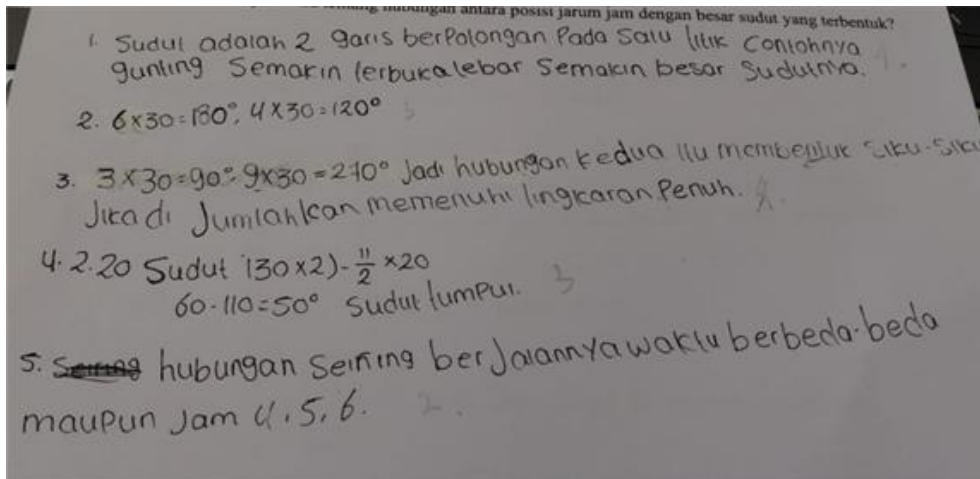 hubungan antara posisi jarum jam dengan besar sudut yang terbentuk?
1. Sudut adalah 2 garis berpotongan Pada satu titik Contohnya
gunting Semakin terbuka lebar Semakin besar Sudutnya.
2. 6×30=180°, 4×30=120°
3. 3×30=90°, 9×30=270° Jadi hubungan kedua itu membentuk siku-siku
Jika di Jumlahkan memenuhi lingkaran Penuh.
4. 2.20 Sudut (30×2)-11/2 ×20
60-110=50° Sudut tumpul.
5. hubungan Seiring berJalannya waktu berbeda-beda
mauPun Jam 4, 5, 6.